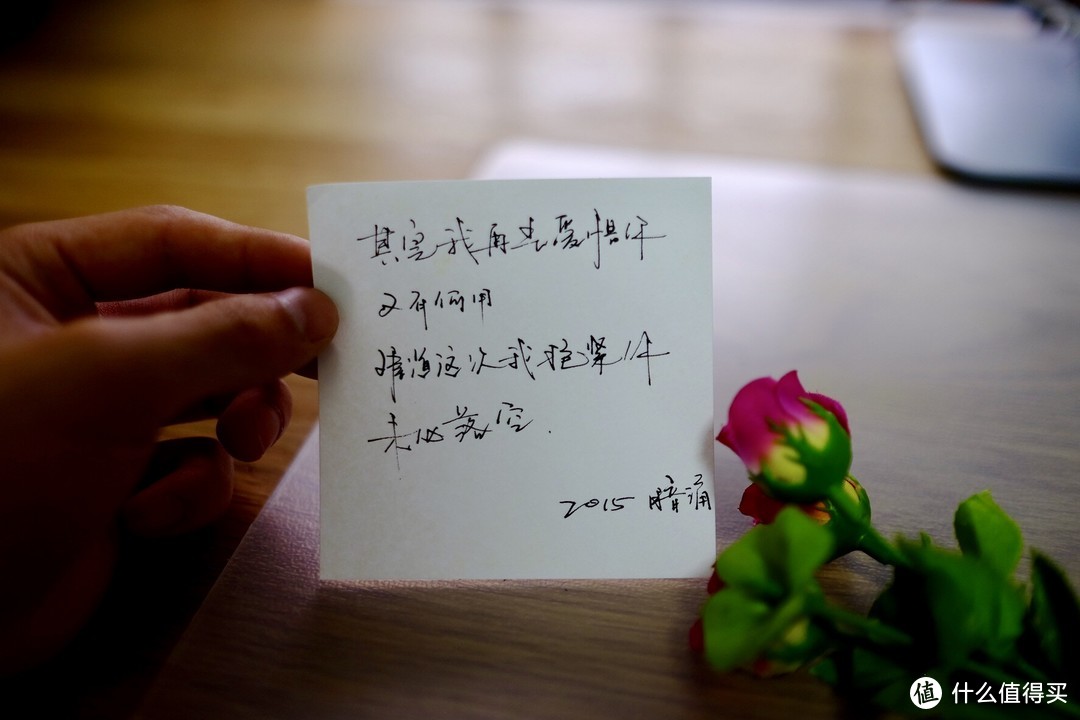 其实我再去爱惜你
又有何用
难道这次我抱紧你
未必落空.
2015 暗涌
值 什么值得买